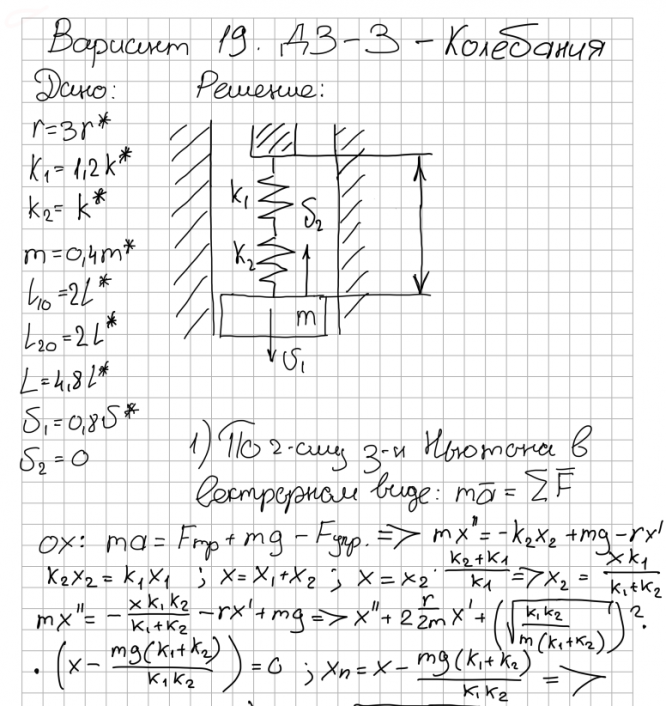 Вариант 19. ДЗ-3 - Колебания
Дано: Решение:
r=3r*
k₁=1,2k*
k₂=k*
m=0,4m*
L₁₀=2L*
L₂₀=2L*
L=4,8L*
υ₁=0,8υ*
υ₂=0
k₁
υ₂
k₂
m
υ₁
1) По 2-ому з-н Ньютона в
векторном виде: ma̅ = ΣF̅
OX: ma = Fтр + mg - Fупр. => mx'' = -k₂x₂ + mg - rx'
k₂x₂ = k₁x₁ ; x = x₁ + x₂ ; x = x₂ · (k₂+k₁)/k₁ => x₂ = xk₁/(k₁+k₂)
mx'' = - xk₁k₂/(k₁+k₂) - rx' + mg => x'' + 2 r/2m x' + (√(k₁k₂/(m(k₁+k₂))))² ·
· (x - mg(k₁+k₂)/(k₁k₂)) = 0 ; xₙ = x - mg(k₁+k₂)/(k₁k₂) =>